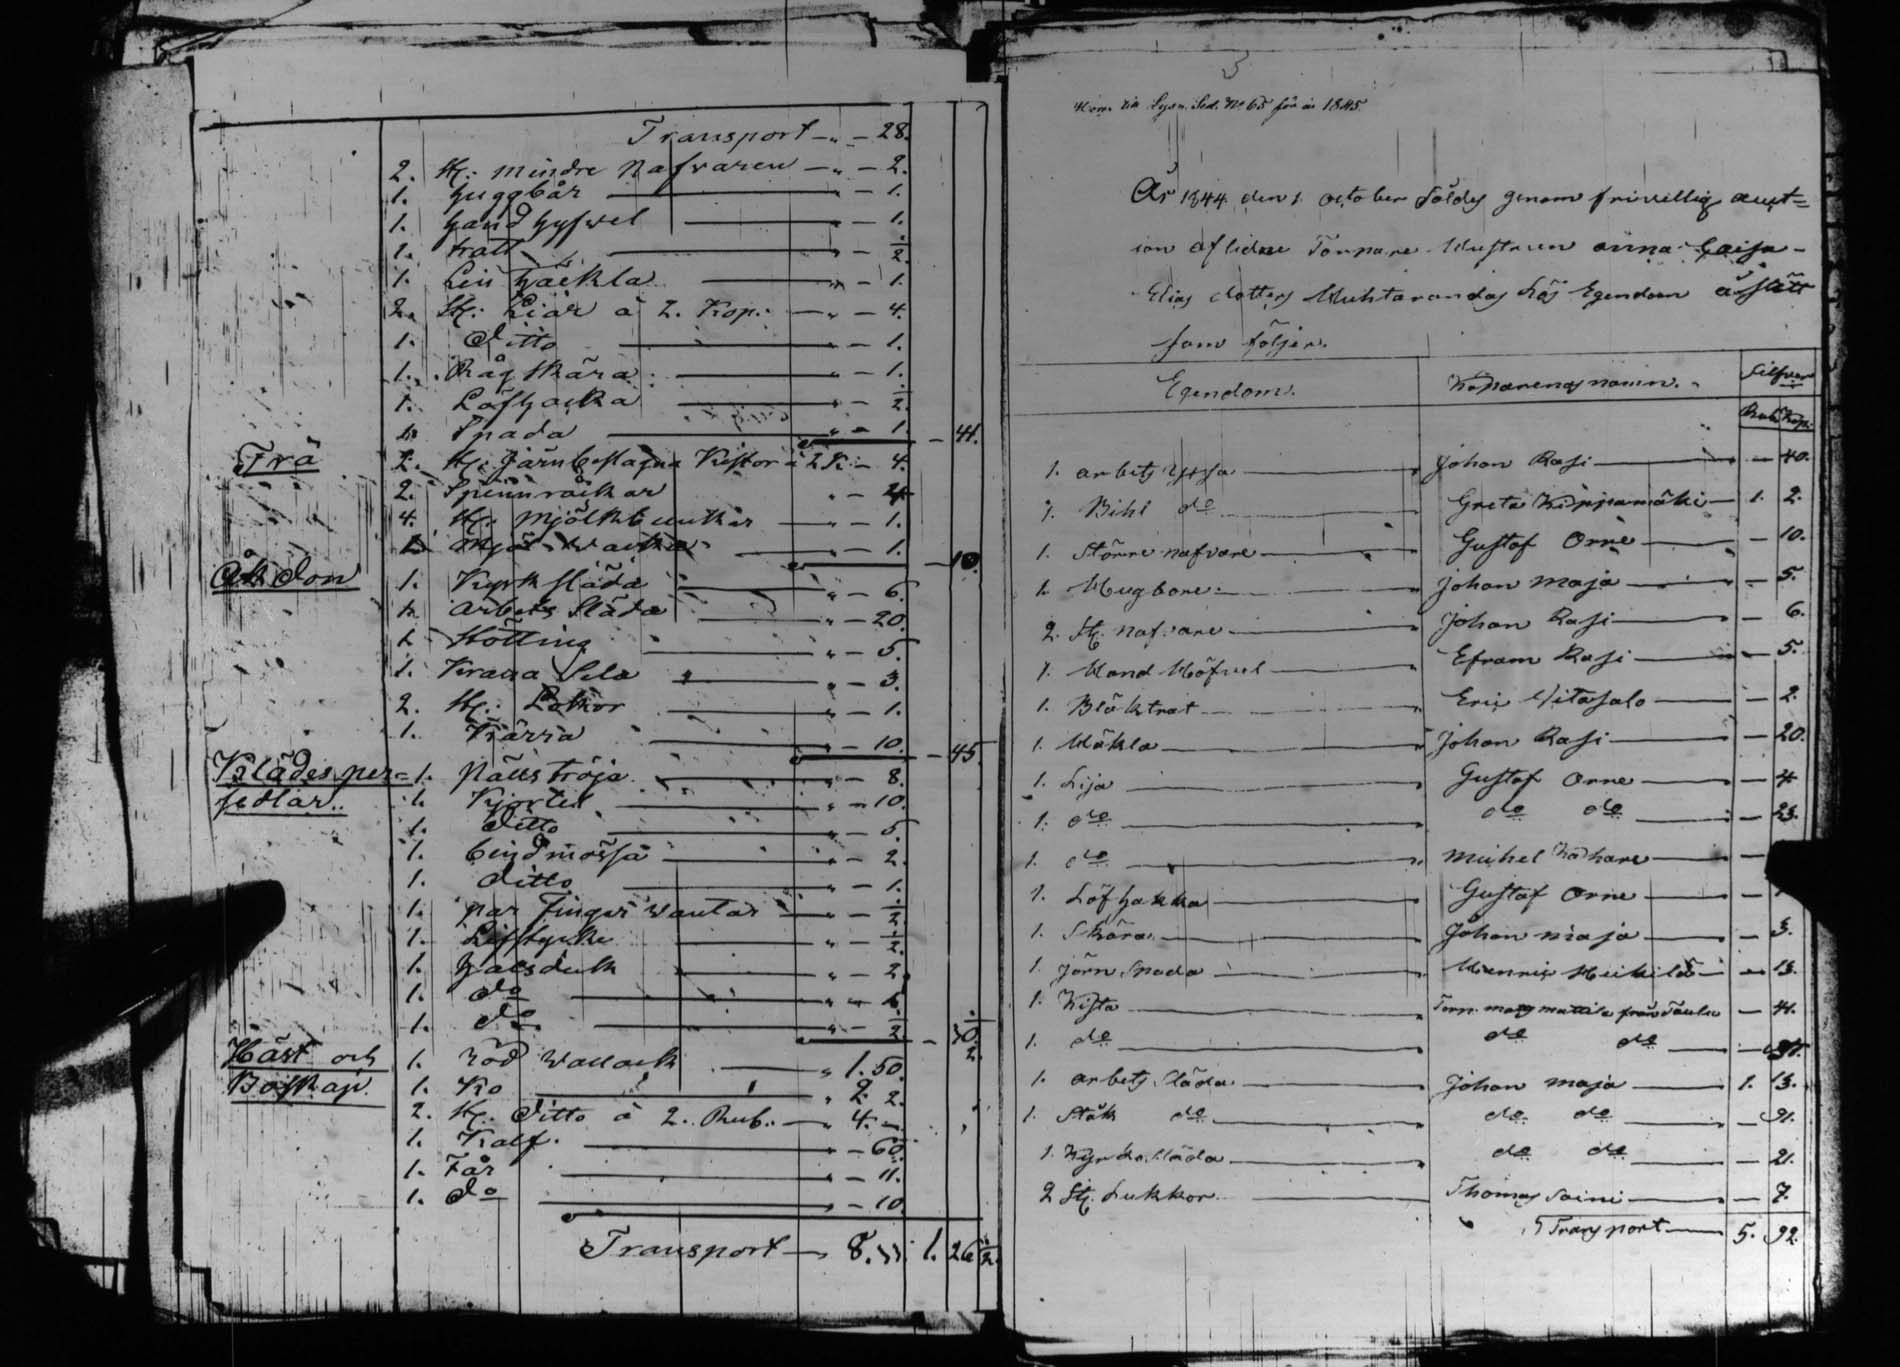 Transport — " — 28.
2. St: mindre Nafvaren — " — 2.
1. huggbår — " — 1.
1. handhyfvel — " — 1.
1. tratt — " — ½
1. Lin häckla — " — 1.
2. St: Liar à 2. Kop: — " — 4.
1. Ditto — " — 1.
1. Rågskära — " — 1.
1. Löfhacka — " — ½
1. Spada — " — 1. — 41.
Trä 2. St: Järnbeslagna Kistor à 2 K: — 4.
2. Spinnråckar " — 4
4. St: Mjölkbunkar — " — 1.
1. Mjöl Wacka — " — 1. — 10.
Åkdon 1. Kyrk släda — " — 6.
1. Arbets Släda — " — 20.
1. Stötting — " — 5.
1. Krana Sela " — " — 3.
2. St: Lokor — " — 1.
1. Kärra — " — 10. — 45.
Klädesper= 1. Pällströja — " — 8.
sedlar.. 1. Kjortel — " — 10.
1. Ditto — " — 5.
1. bindmössa — " — 2.
1. Ditto — " — 1.
1. par Finger wantar — " — ½
1. Lifstycke — " — ½
1. halsduk — " — 2.
1. do — "
1. do — " — ½ — 30. ½
Häst och 1. röd Wallack — " 1. 50.
Boskap. 1. Ko — " 2. 2.
2. St: Ditto à 2. Rub.. — " 4. —
1. Kalf. — " — 60.
1. Får — " — 11.
1. do — " — 10
Transport — 8. 1. 26 ½.
3
No 65 för år 1845
År 1844 den 1 October såldes genom frivillig auct=
ion aflidne Torpare Anna Caisa
Elias dotters Egendom
som följer.
Egendom. Köparenas namn. Silfver
Rub. Kop.
1. arbets — Johan Rasi — — 40.
1. Bihl do — Greta Kippamäki — 1. 2.
1. Större nafvare — Gustaf Orne — — 10.
1. Hugbore — Johan Maja — — 5.
2. St. nafvare — Johan Rasi — — 6.
1. Hand Höfvel — Efram Rasi — — 5.
1. Bläktrat — Eric — — 2.
1. Häkla — Johan Rasi — — 20.
1. Lija — Gustaf Orne — — 4
1. do — do do — — 23.
1. do — Michel —
1. Löfhakka — Gustaf Orne —
1. Skära — Johan Maja — — 3.
1. Järn Spada — Henric Heikilä — — 13.
1. Kista Torp. från — 41.
1. do — do do —
1. arbets Släda — Johan Maja — 1. 13.
1. Ståk do — do do — — 91.
1. Kyrko Släda — do do — — 21.
2 St. Lukkor — Thomas Soini — — 7.
Transport — 5. 92.